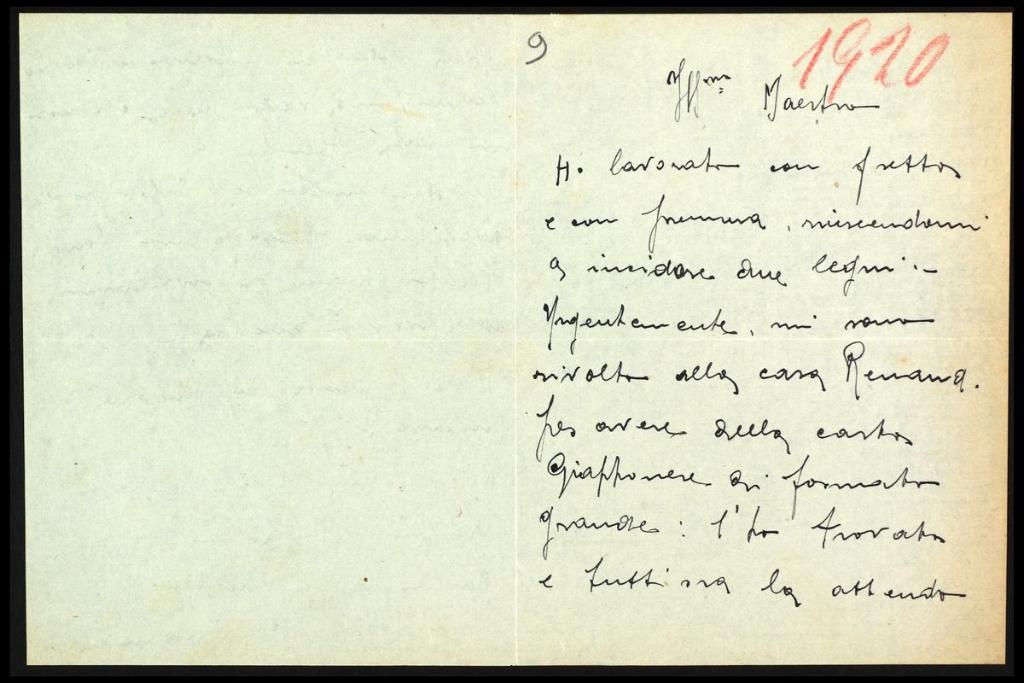 9
1920
Ill.mo Maestro
Ho lavorato con fretta
e con premura, riuscendomi
a incidere due legni.-
Urgentemente, mi sono
rivolto alla casa Renaud.
per avere della carta
Giapponese di formato
grande: l'ho trovata
e tutt'ora la attendo